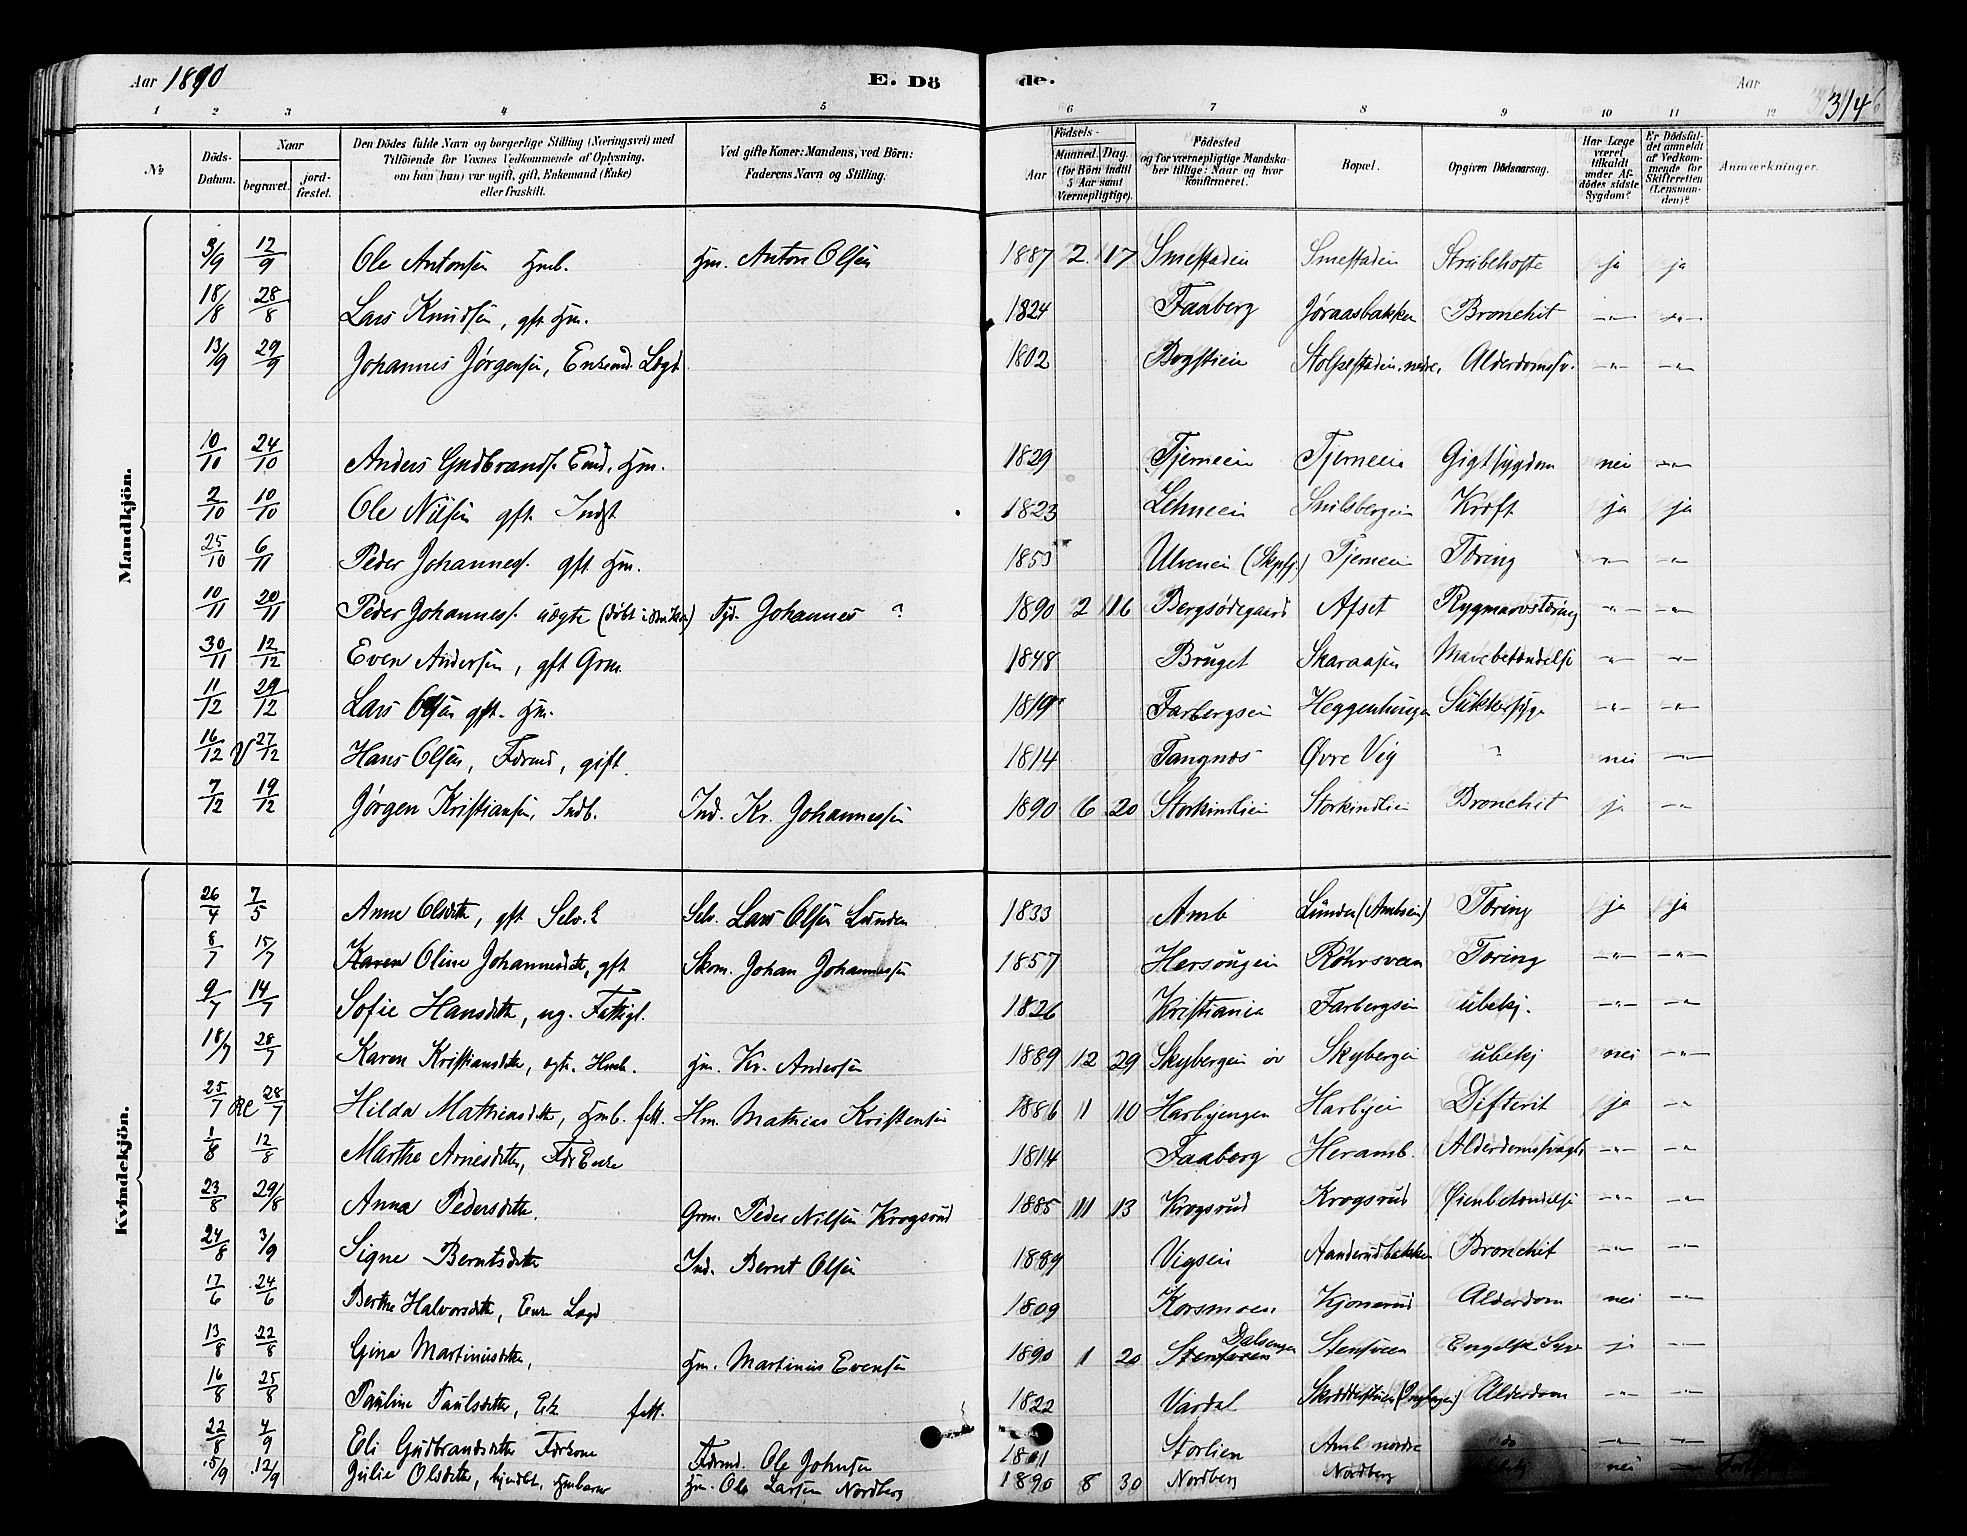 Aar 1890 E. Dö de. Aar 314
1 2 3 4 5 6 7 8 9 10 11 12
No Döds-Datum. Naar begravet. jord-fæstet. Den Dödes fulde Navn og borgerlige Stilling (Næringsvei) med Tilföiende for Voxnes Vedkommende af Oplysning, om han (hun) var ugift, gift, Enkemand (Enke) eller fraskilt. Ved gifte Koner: Mandens, ved Börn: Faderens Navn og Stilling. Födsels- Aar Maaned. Dag. (for Börn indtil 5 Aar samt Værnepligtige). Födested og for værnepligtige Mandskaber tillige: Naar og hvor konfirmeret. Bopæl. Opgiven Dödsaarsag. Har Læge været tilkaldt under Afdödes sidste Sygdom? Er Dödsfaldet anmeldt af Vedkommende for Skifteretten (Lensmanden)? Anmærkninger.
Mandkjön.
3/9 12/9 Ole Antonsen Hmb. Hm. Anton Olsen 1887 2 17 Smestadeie Smestadeie Strubehoste ja ja
18/8 28/8 Lars Knudsen, gft Hm. 1824 Faaberg Jøraasbakken Bronchit -"- -"-
13/9 29/9 Johannes Jørgensen, Enkemd. Lægd 1802 Bogstieie Stolpestadeie, nedre, Alderdomssv. -"- -"-
10/10 24/10 Anders Gudbrands. Emd. Hm. 1829 Tjerneeie Tjerneeie Gigtsygdom nei -"-
2/10 10/10 Ole Nilsen gft. Indst 1823 Lehneeie Snilsbergeie Kræft ja ja
25/10 6/11 Peder Johannes. gft Hm. 1853 Ulveneie (Skpsg.) Tjerneeie Tæring -"- -"-
10/11 20/11 Peder Johannes. uægte Fgd. Johannes ? 1890 2 16 Bergsødegaard Afset Rygmarvstæring -"- -"-
30/11 12/12 Even Andersen, gft Grm. 1848 Bruget Skaraasen Mavebetændelse -"- -"-
11/12 29/12 Lars Olsen gft. Hm. 1819 Farbergseie Heggenhaugen Sukkersyge -"- -"-
16/12 27/12 Hans Olsen, Fdrmd, gift. 1814 Tangnæs Øvre Vig ? nei -"-
7/12 19/12 Jørgen Kristiansen, Indb. Ind. Kr. Johannessen 1890 6 20 Storkindlien Storkindlien Bronchit ja -"-
Kvindekjön.
26/4 7/5 Anne Olsdtr, gft Selv.E Selv. Lars Olsen Lunden 1833 Amb Lunden (Ambseie) Tæring ja ja
8/7 15/7 Karen Oline Johannesdtr, gft Skom. Johan Johannessen 1857 Hersougeie Röhrsveen Tæring -"- -"-
9/7 14/7 Sofie Hansdtr, ug. Fattigl. 1826 Kristiania Farbergseie ubekj. -"- -"-
18/7 28/7 Karen Kristiansdtr, ægt. Hmb. Hm. Kr. Andersen 1889 12 29 Skybergeie øv Skybergeie ubekj nei -"-
25/7 28/7 Hilda Mathiasdtr, Hmb. fatt. Hm. Mathias Kristensen 1886 11 10 Harbyengen Harbyeie Difterit ja -"
1/8 12/8 Marthe Arnesdtr, FdrEnke 1814 Faaberg Heramb. Alderdomssvagh. -"- -"-
23/8 29/8 Anna Pedersdtr. Grm. Peder Nilsen Krogsrud 1885 11 13 Krogsrud Krogsrud Øienbetændelse -"- -"-
24/8 3/9 Signe Berntsdtr Ind. Bernt Olsen 1889 Vigseie Aanderudbakken Bronchit -"- -"-
17/6 24/6 Berthe Halvorsdtr, Enke Lægd 1809 Korsmoen Kjonerud Alderdom nei -"-
13/8 22/8 Gina Martinusdtr, Hm. Martinus Evensen 1890 1 20 Stensveen Dalsengen Stensveen Engelsk Syge ja -"-
16/8 25/8 Pauline Paulsdtr, Ek fatt. 1822 Vardal Alderdom -"- -"-
22/8 4/9 Eli Gudbrandsdtr Fdrkone Fdrmd. Ole Johnsen 1801 Storlien Amb nordre do -"- -"-
5/9 12/9 Julie Olsdtr, hjmdbt, Hmbarn Hm. Ole Larsen Nordberg 1890 8 30 Nordberg Nordberg nei -"-